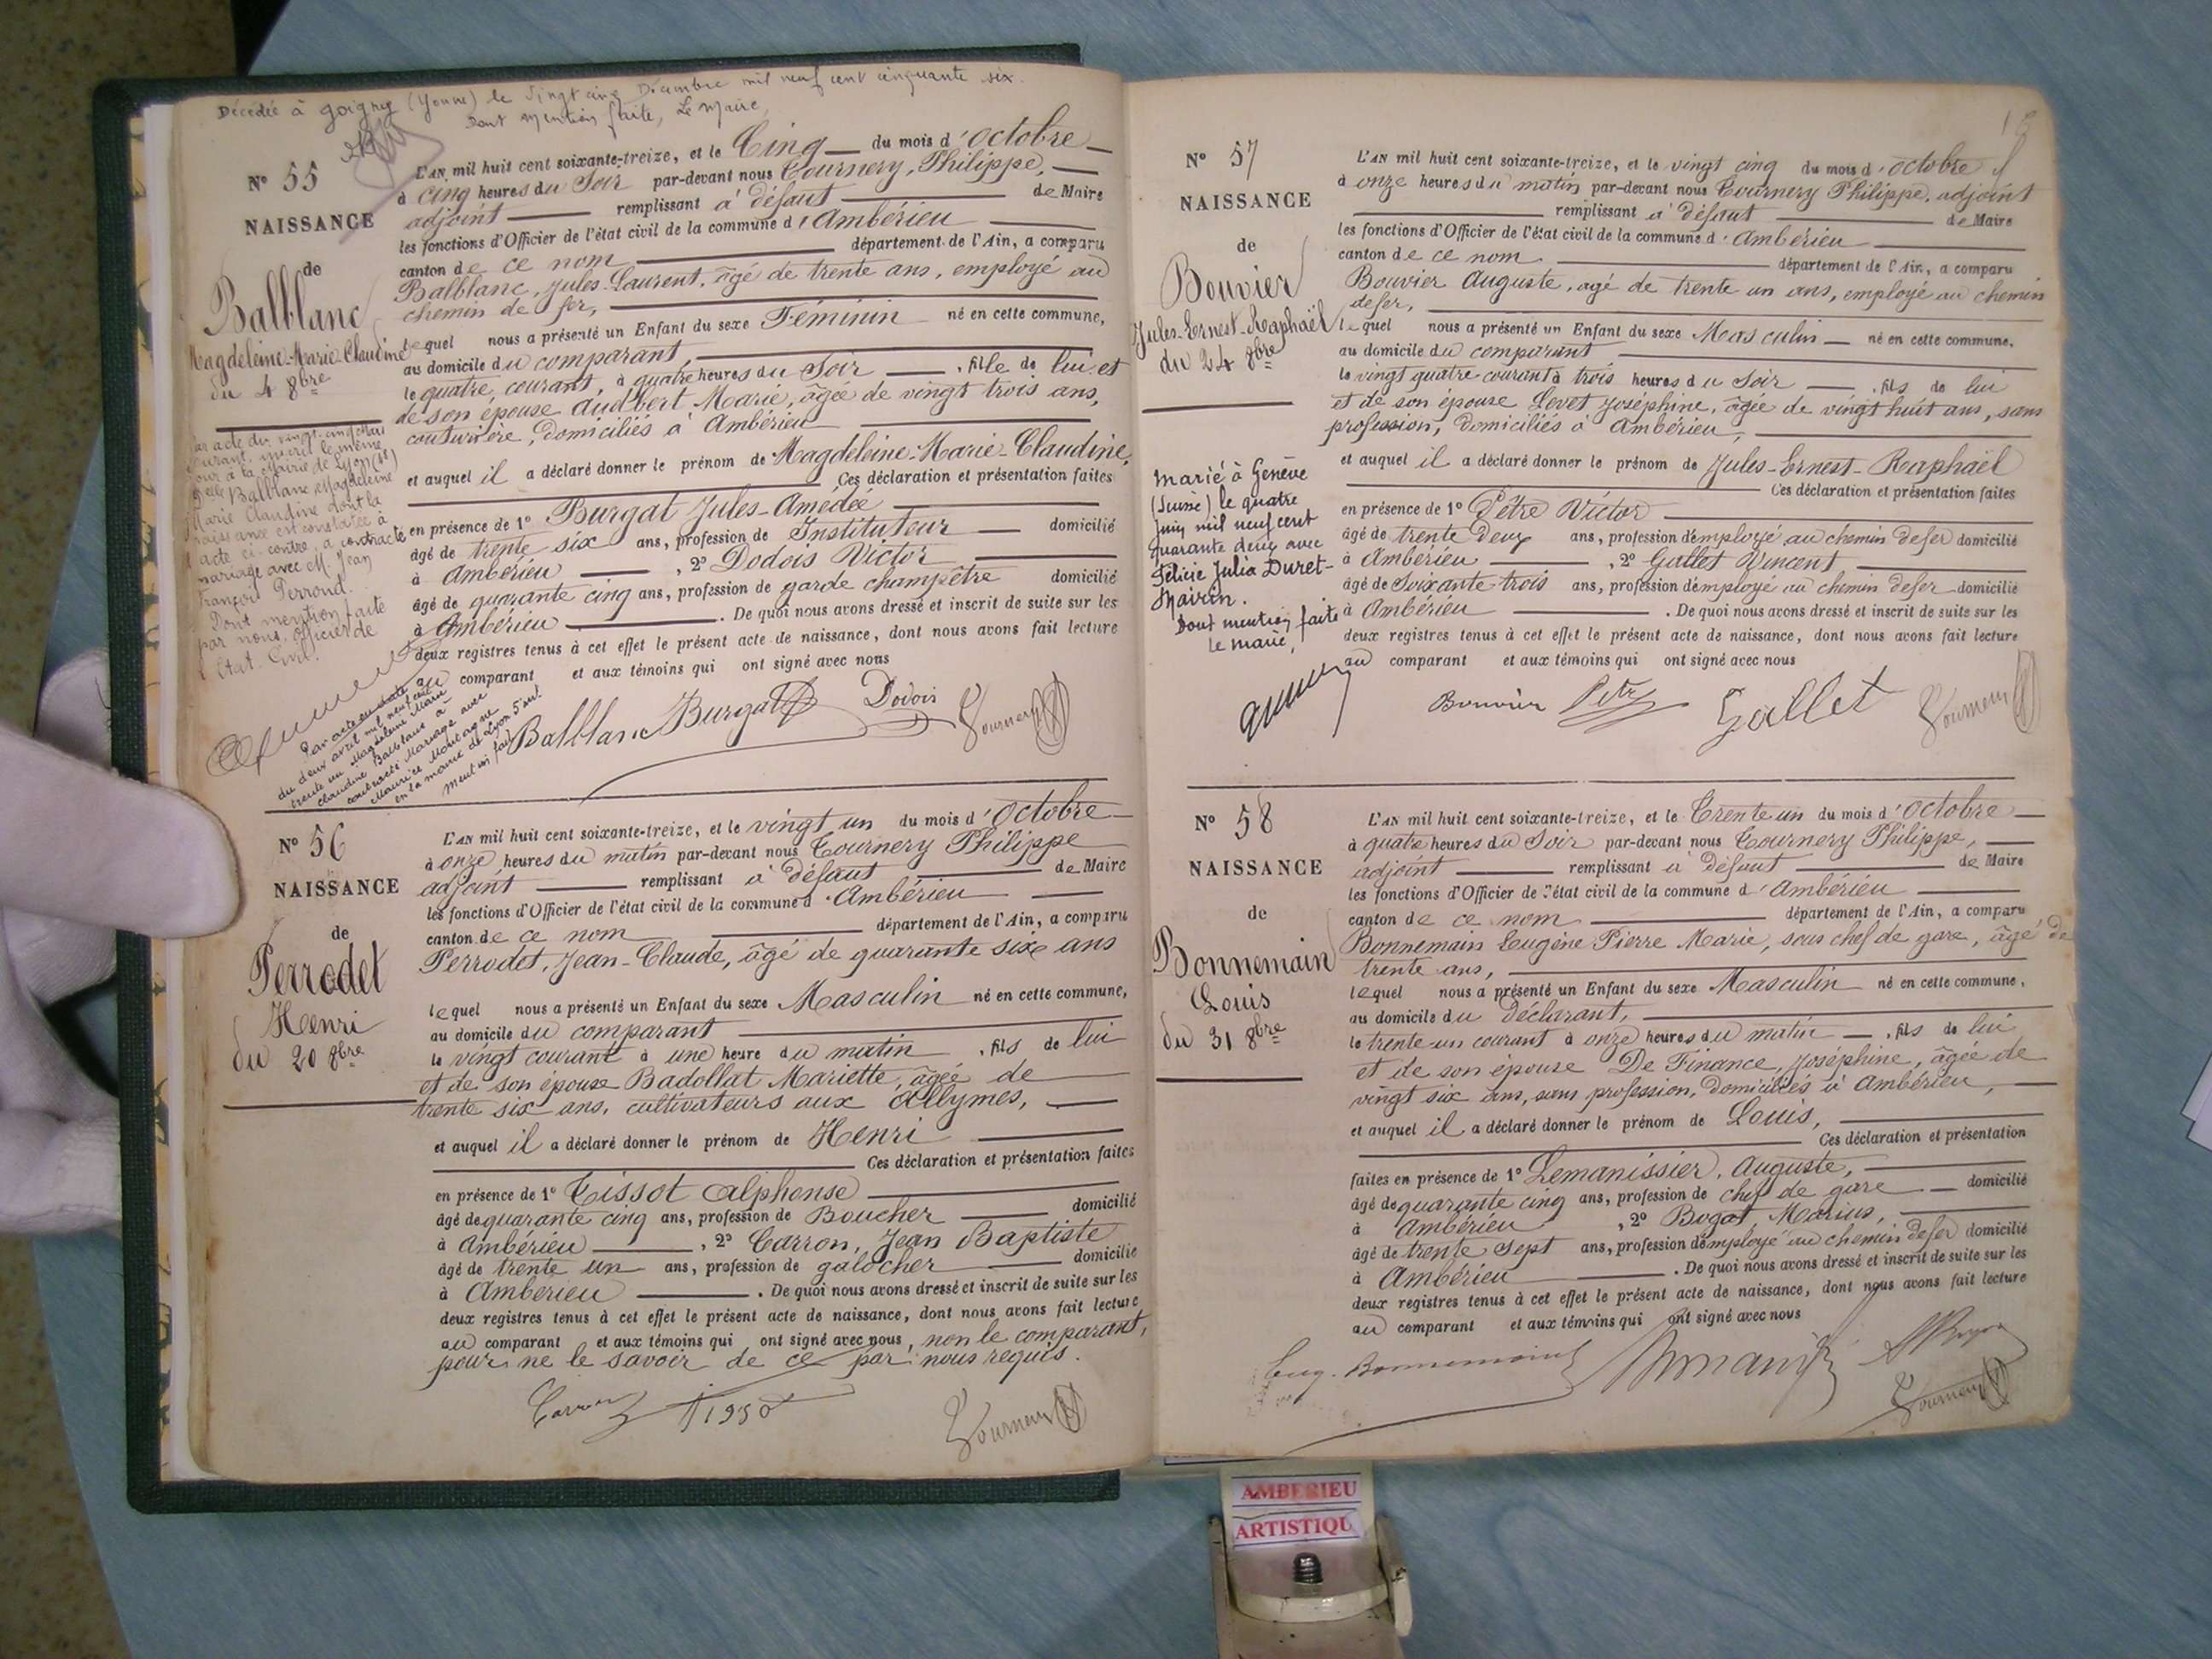 Décédée à (Yonne) le Vingt cinq Décembre mil neuf cent cinquante six.
Dont mention faite, Le Maire,
N° 55
NAISSANCE
de
Balblanc
Magdeleine-Marie-Claudine
du 4 8bre
L'AN mil huit cent soixante-treize, et le Cinq du mois d'Octobre
à cinq heures du Soir par-devant nous Tournery, Philippe,
adjoint remplissant à défaut de Maire
les fonctions d'Officier de l'état civil de la commune d'Ambérieu
canton de ce nom département de l'Ain, a comparu
Balblanc, Jules-Laurent, âgé de trente ans, employé au
chemin de fer,
lequel nous a présenté un Enfant du sexe Féminin né en cette commune,
au domicile du comparant,
le quatre, courant, à quatre heures du Soir , fille de lui et
de son épouse Audbert Marie, âgée de vingt trois ans,
couturière, domiciliés à Ambérieu
et auquel il a déclaré donner le prénom de Magdeleine-Marie-Claudine,
Ces déclaration et présentation faites
en présence de 1° Burgat Jules-Amédée
âgé de trente six ans, profession de Instituteur domicilié
à Ambérieu , 2° Dodois Victor
âgé de quarante cinq ans, profession de garde champêtre domicilié
à Ambérieu . De quoi nous avons dressé et inscrit de suite sur les
deux registres tenus à cet effet le présent acte de naissance, dont nous avons fait lecture
au comparant et aux témoins qui ont signé avec nous
Balblanc Burgat Dodois Tournery
Par acte du vingt-cinq
courant, inscrit le même
jour à la Mairie de Lyon
Balblanc Magdeleine
Marie Claudine dont la
naissance est constatée à
l'acte ci-contre a contracté
mariage avec M. Jean
François Perroud.
Dont mention faite
par nous, officier de
l'Etat-Civil.
Par acte en date
du deux avril mil neuf cent
trente un Magdeleine Marie
Claudine Balblanc a
contracté Mariage avec
Maurice
en la mairie de Lyon 5e
mention fait
N° 56
NAISSANCE
de
Perrodet
Henri
du 20 8bre
L'AN mil huit cent soixante-treize, et le vingt un du mois d'Octobre
à onze heures du matin par-devant nous Tournery Philippe
adjoint remplissant à défaut de Maire
les fonctions d'Officier de l'état civil de la commune d'Ambérieu
canton de ce nom département de l'Ain, a comparu
Perrodet, Jean-Claude, âgé de quarante six ans
lequel nous a présenté un Enfant du sexe Masculin né en cette commune,
au domicile du comparant
le vingt courant à une heure du matin , fils de lui
et de son épouse Badollat Mariette, âgée de
trente six ans, cultivateurs aux Allymes,
et auquel il a déclaré donner le prénom de Henri
Ces déclaration et présentation faites
en présence de 1° Tissot Alphonse
âgé de quarante cinq ans, profession de Boucher domicilié
à Ambérieu , 2° Carron, Jean Baptiste
âgé de trente un ans, profession de galocher domicilié
à Ambérieu . De quoi nous avons dressé et inscrit de suite sur les
deux registres tenus à cet effet le présent acte de naissance, dont nous avons fait lecture
au comparant et aux témoins qui ont signé avec nous, non le comparant,
pour ne le savoir de ce par nous requis.
Carron Tissot Tournery
N° 57
NAISSANCE
de
Bouvier
Jules-Ernest-Raphaël
du 24 8bre
L'AN mil huit cent soixante-treize, et le vingt cinq du mois d'Octobre
à onze heures du matin par-devant nous Tournery Philippe, adjoint
remplissant à défaut de Maire
les fonctions d'Officier de l'état civil de la commune d'Ambérieu
canton de ce nom département de l'Ain, a comparu
Bouvier Auguste, âgé de trente un ans, employé au chemin
de fer,
lequel nous a présenté un Enfant du sexe Masculin né en cette commune,
au domicile du comparant
le vingt quatre courant à trois heures du Soir , fils de lui
et de son épouse Levet Joséphine, âgée de vingt huit ans, sans
profession, domiciliés à Ambérieu,
et auquel il a déclaré donner le prénom de Jules-Ernest-Raphaël
Ces déclaration et présentation faites
en présence de 1° Pêtre Victor
âgé de trente deux ans, profession d'employé au chemin de fer domicilié
à Ambérieu , 2° Gallet Vincent
âgé de Soixante-trois ans, profession d'employé au chemin de fer domicilié
à Ambérieu . De quoi nous avons dressé et inscrit de suite sur les
deux registres tenus à cet effet le présent acte de naissance, dont nous avons fait lecture
au comparant et aux témoins qui ont signé avec nous
Bouvier Petre Gallet Tournery
Marié à Genève
(Suisse) le quatre
Juin mil neuf cent
quarante deux avec
Félicie Julia Duret-
Dont mention faite
Le maire,
N° 58
NAISSANCE
de
Bonnemain
Louis
du 31 8bre
L'AN mil huit cent soixante-treize, et le Trente un du mois d'Octobre
à quatre heures du Soir par-devant nous Tournery Philippe,
adjoint remplissant à défaut de Maire
les fonctions d'Officier de l'état civil de la commune d'Ambérieu
canton de ce nom département de l'Ain, a comparu
Bonnemain Eugène Pierre Marie, sous chef de gare, âgé de
trente ans,
lequel nous a présenté un Enfant du sexe Masculin né en cette commune,
au domicile du déclarant,
le trente un courant à onze heures du matin , fils de lui
et de son épouse De Finance, Joséphine, âgée de
vingt six ans, sans profession, domiciliés à Ambérieu,
et auquel il a déclaré donner le prénom de Louis,
Ces déclaration et présentation
faites en présence de 1° Lemanissier, Auguste,
âgé de quarante cinq ans, profession de chef de gare domicilié
à Ambérieu , 2° Bogat, Marius,
âgé de trente sept ans, profession d'employé au chemin de fer domicilié
à Ambérieu . De quoi nous avons dressé et inscrit de suite sur les
deux registres tenus à cet effet le présent acte de naissance, dont nous avons fait lecture
au comparant et aux témoins qui ont signé avec nous
Eug. Bonnemain Tournery
AMBERIEU
ARTISTIQU